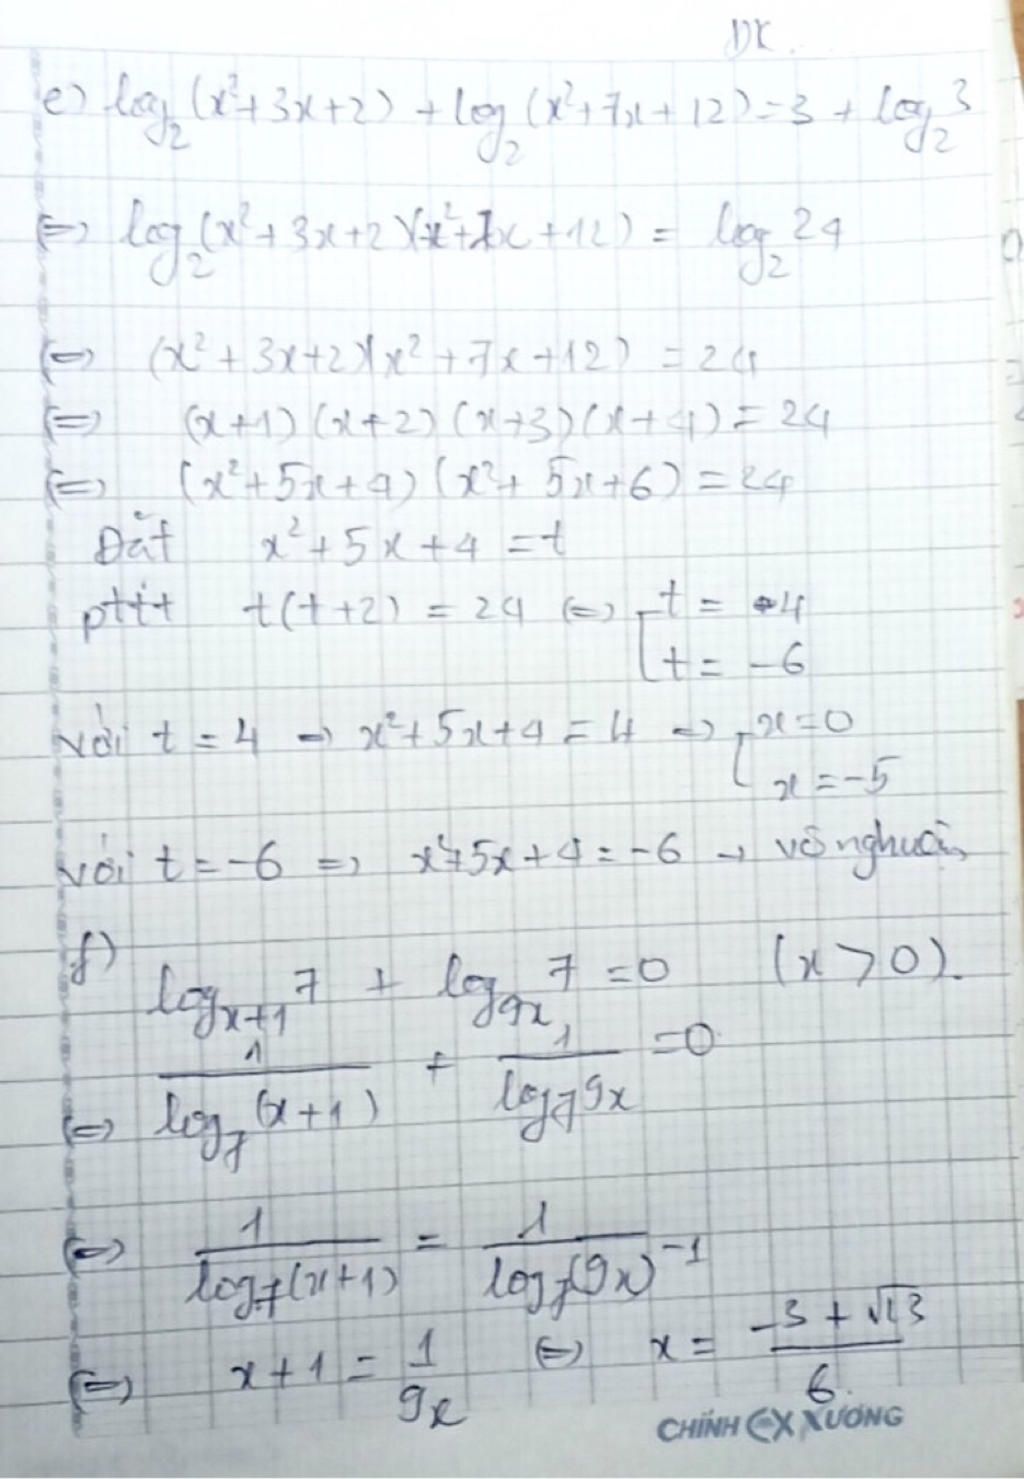 ĐK.
e) log₂(x²+3x+2) + log₂(x²+7x+12) = 3 + log₂3
⇔ log₂(x²+3x+2)(x²+7x+12) = log₂24
⇔ (x²+3x+2)(x²+7x+12) = 24
⇔ (x+1)(x+2)(x+3)(x+4) = 24
⇔ (x²+5x+4)(x²+5x+6) = 24
Đặt x²+5x+4 = t
pttt t(t+2) = 24 ⇔ [t = 4
[t = -6
với t = 4 ⇒ x²+5x+4 = 4 ⇒ [x=0
[x = -5
với t = -6 ⇒ x²+5x+4 = -6 → vô nghiệm
f) logₓ₊₁7 + log₉ₓ7 = 0 (x > 0).
⇔ 1/log₇(x+1) + 1/log₇9x = 0
⇔ 1/log₇(x+1) = 1/log₇(9x)⁻¹
⇔ x+1 = 1/9x ⇔ x = (-3+√13)/6.
CHÍNH EX XƯƠNG